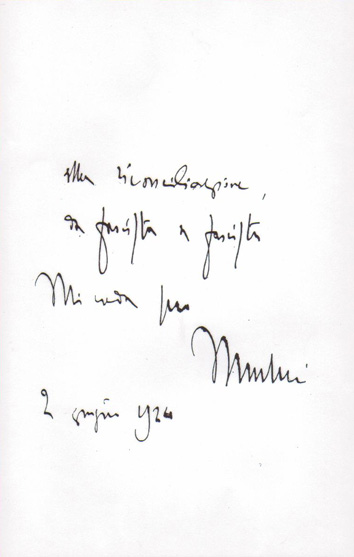 alla riconciliazione,
da fascista a fascista
Mi creda suo
Mussolini
2 giugno 1924